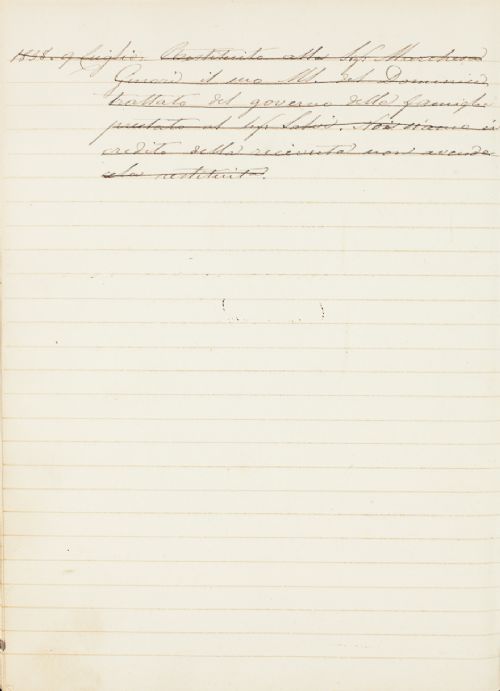 1858. 9 Luglio. Restituito alla Sigr. Marchesa
Ginori il suo MS. del Dominici,
trattato del governo della famiglia
prestato al Sigr Salvi. Noi siamo in
credito della ricevuta non avendo
cela restituita.